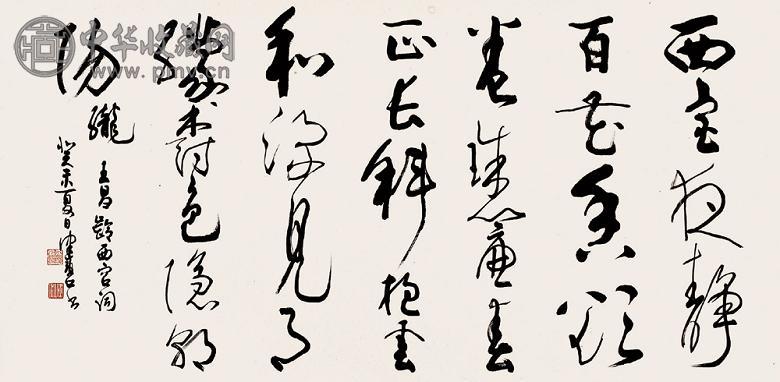 西宫夜静
百花香欲
卷珠簾春
正长斜抱雲
和深见月
朦树色隐昭
阳
朧 王昌龄西宫词
癸未夏日
中华收藏网